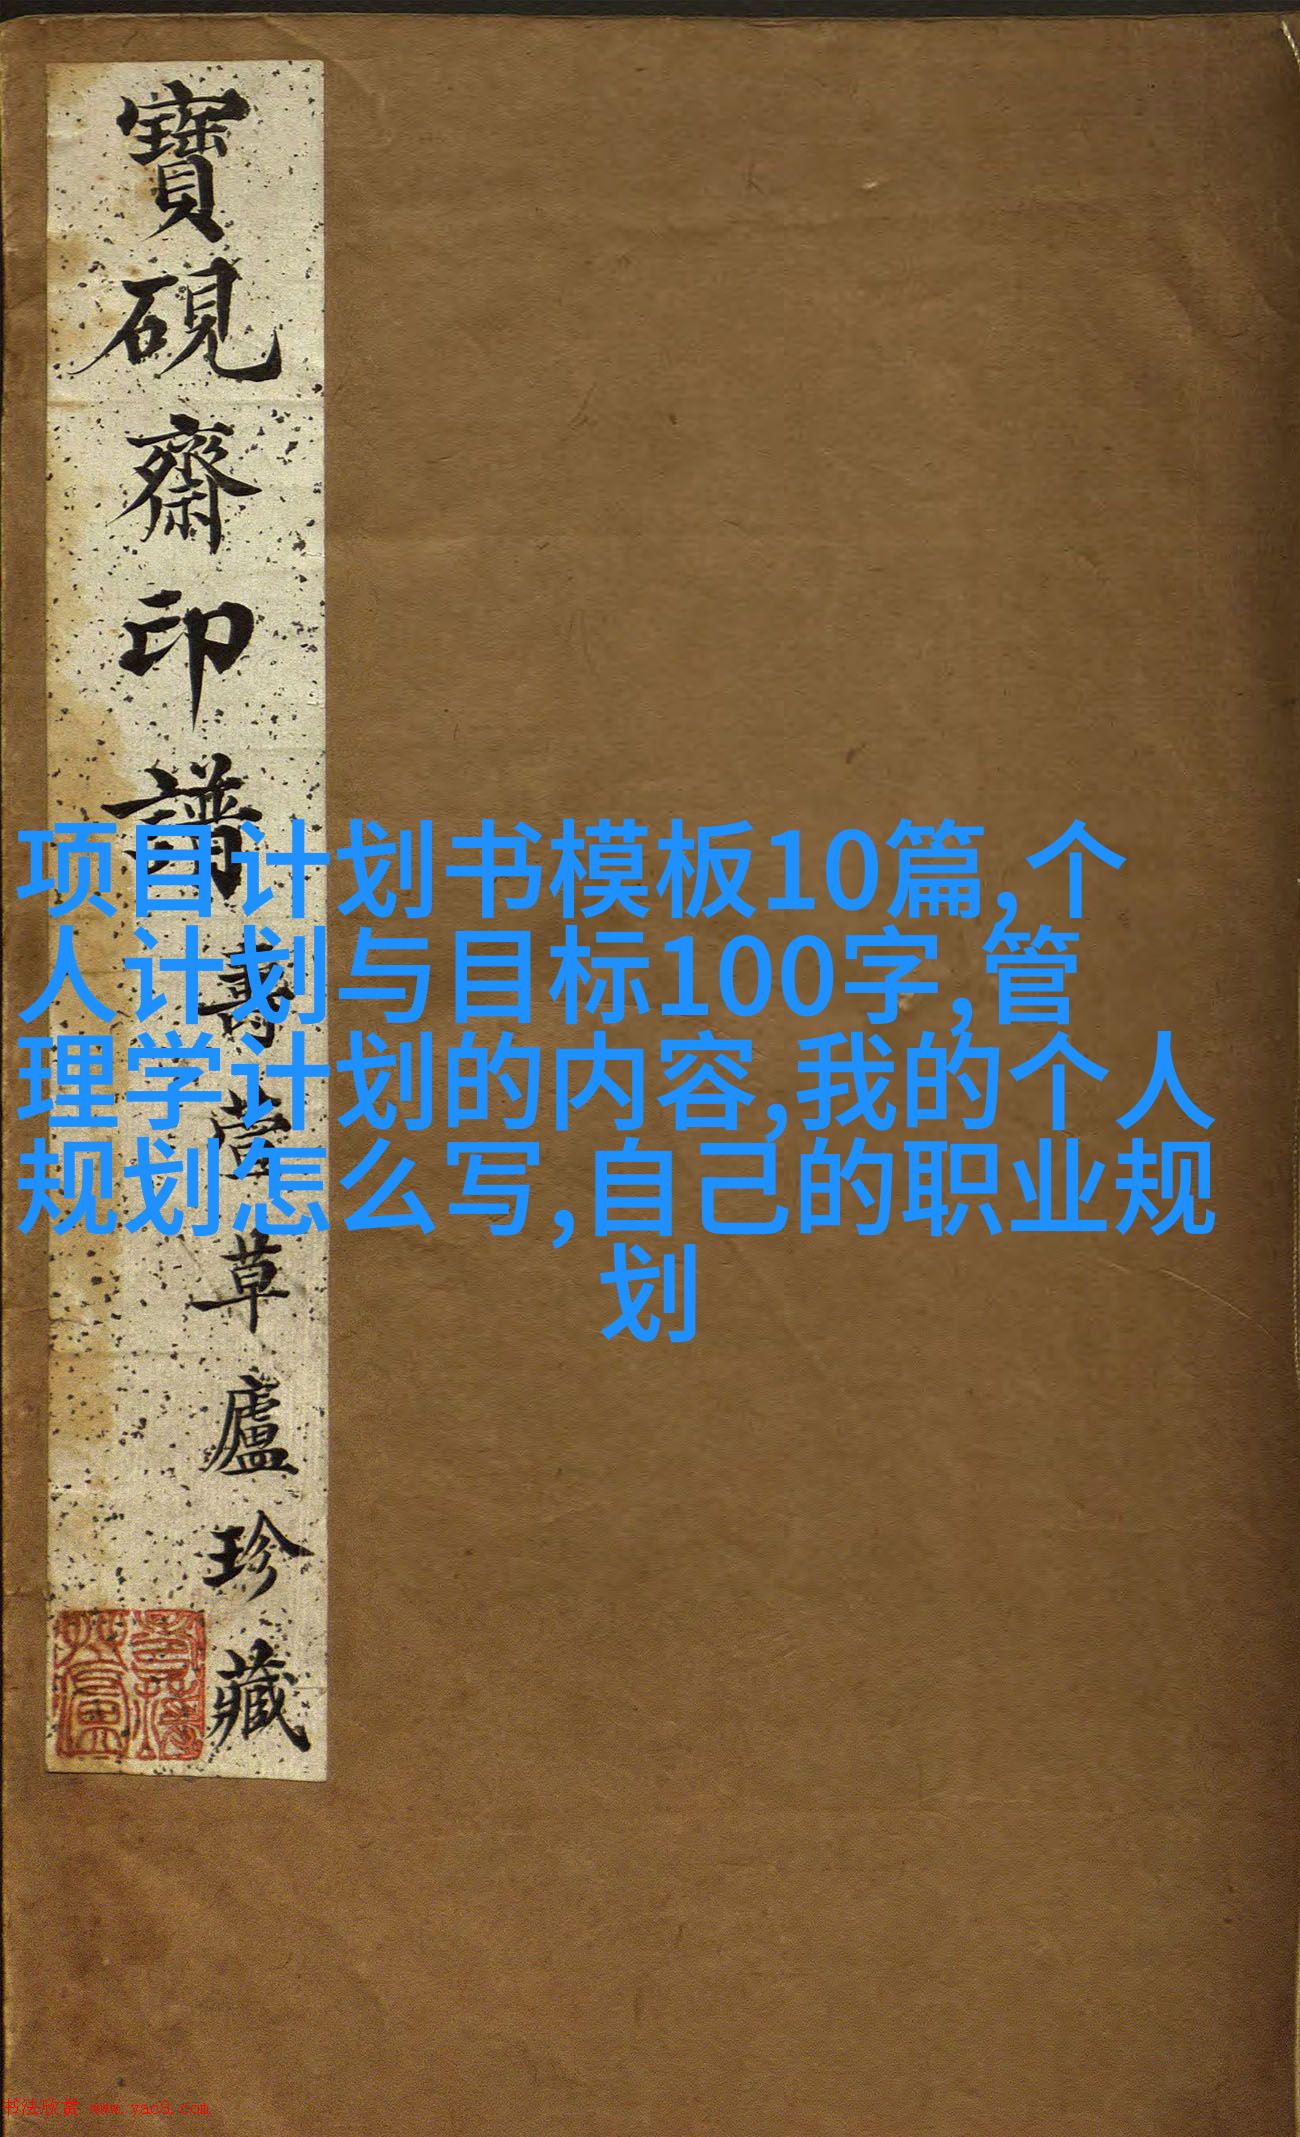 寶硯齋印譜
壽萱草廬珍藏
项目计划书模板10篇,个
人计划与目标100字,管
理学计划的内容,我的个人
规划怎么写,自己的职业规
划
书法欣赏 www.yac8.com